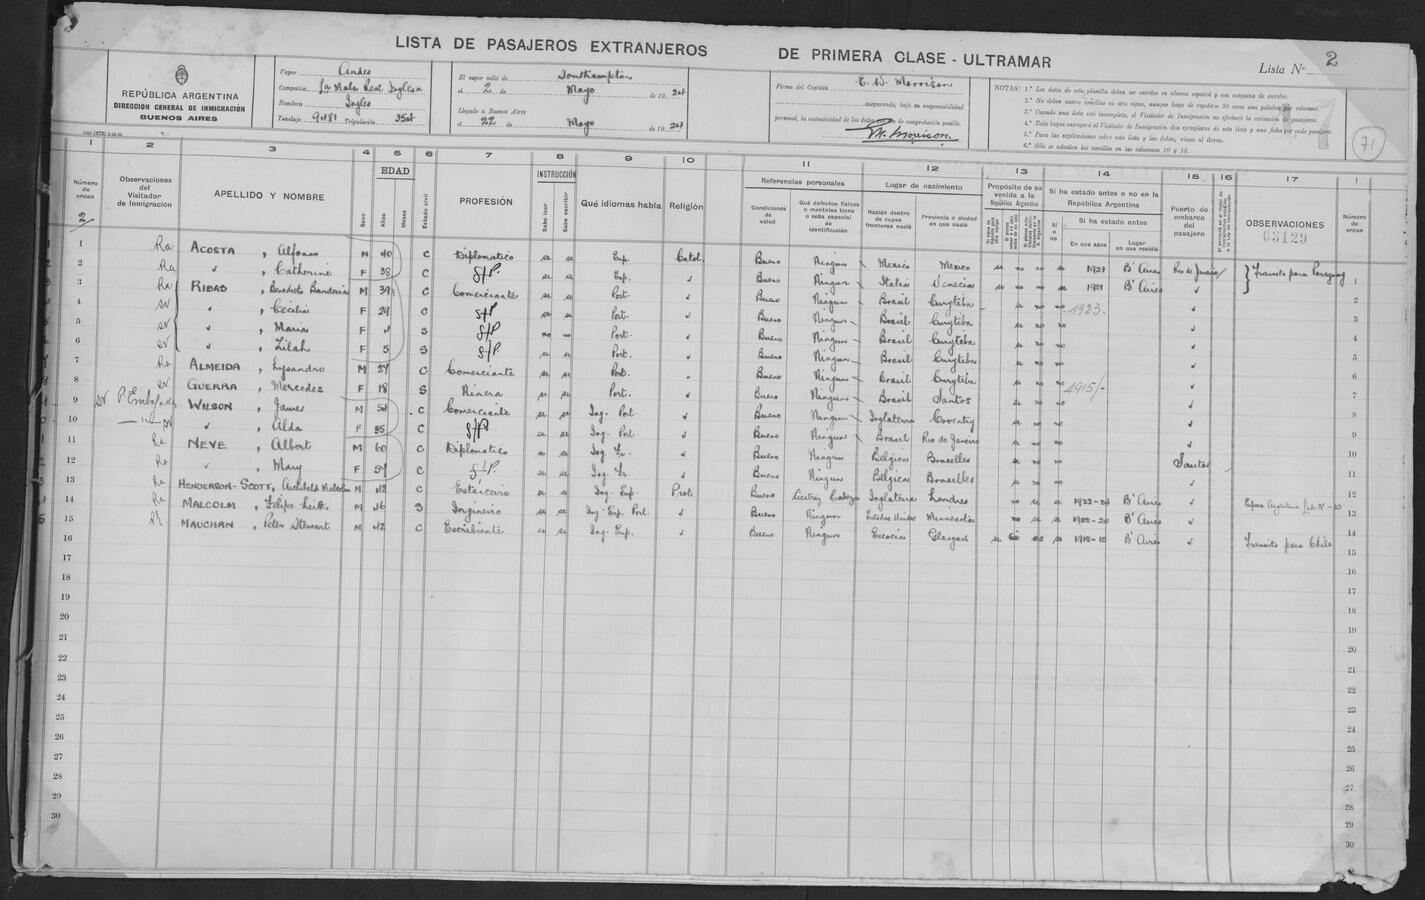 LISTA DE PASAJEROS EXTRANJEROS DE PRIMERA CLASE - ULTRAMAR
Lista Nº 2
REPÚBLICA ARGENTINA
DIRECCIÓN GENERAL DE INMIGRACIÓN
BUENOS AIRES
Vapor Andes
Compañía La Mala Real Inglesa
Bandera Ingles
Tonelaje 9481 Tripulación 354
El vapor salió de Southampton
el 2 de Mayo de 1924
Llegado a Buenos Aires
el 22 de Mayo de 1924
Firma del Capitán E. W. Morrison
asegurando, bajo su responsabilidad
personal, la autenticidad de los datos de comprobación posible.
NOTAS: 1.° Los datos de esta planilla deben ser escritos en idioma español y con máquina de escribir.
2.° No deben usarse comillas ni otro signo, aunque haya de repetirse 30 veces una palabra por columna.
3.° Cuando una lista esté incompleta, el Visitador de Inmigración no efectuará la visitación de pasajeros.
4.° Todo buque entregará al Visitador de Inmigración dos ejemplares de esta lista y una ficha por cada pasajero.
5.° Para las explicaciones sobre esta lista y las fichas, véase al dorso.
6.° Sólo se admiten las comillas en las columnas 10 y 15.
71
1 2 3 4 5 6 7 8 9 10 11 12 13 14 15 16 17 1
Número de orden
Observaciones del Visitador de Inmigración
APELLIDO Y NOMBRE
Sexo
EDAD
Años
Meses
Estado civil
PROFESIÓN
INSTRUCCIÓN
Sabe leer
Sabe escribir
Qué idiomas habla
Religión
Referencias personales
Condiciones de salud
Qué defectos físicos o mentales tiene o seña especial de identificación
Lugar de nacimiento
Nación dentro de cuyas fronteras nació
Provincia o ciudad en que nació
Propósito de su venida a la República Argentina
Si ha estado antes o no en la República Argentina
Si o no
Si ha estado antes
En que años
Lugar en que residió
Puerto de embarco del pasajero
OBSERVACIONES
03129
Número de orden
1 ACOSTA, Alfonso M 40 C Diplomatico si si Esp. Catol. Bueno Ningun Mexico Mexico si no no si 1921 Bs Aires Rio de Janeiro Transito para Paraguay
2 " , Catherine F 38 C S/P. si si Esp. " Bueno Ningun Italia Venecia si no no si 1921 Bs Aires "
3 RIBAS, Benedicto M 39 C Comerciante si si Port. " Bueno Ningun Brasil Curytiba
4 " , Cecilia F 29 C S/P si si Port. " Bueno Ningun Brasil Curytiba 1923
5 " , Maria F 7 S S/P no no Port. " Bueno Ningun Brasil Curytiba
6 " , Lilah F 5 S S/P. si si Port. " Bueno Ningun Brasil Curytiba
7 ALMEIDA, Lysandro M 27 C Comerciante si si Port. Bueno Ningun Brasil Curytiba
8 GUERRA, Mercedes F 18 S si si Port. " Bueno Ningun Brasil Santos 1915
9 WILSON, James M 54 C Comerciante si si Ing. Port. " Bueno Ningun Inglaterra Coventry
10 " , Alda F 35 C S/P si si Ing. Port. " Bueno Ningun Brasil Rio de Janeiro
11 NEVE, Albert M 60 C Diplomatico si si Ing. Fr. " Bueno Ningun Belgica Bruxelles Santos
12 " , Mary F 57 C S/P. si si Ing. Fr. " Bueno Ningun Belgica Bruxelles
13 HENDERSON-SCOTT, Archibald Malcolm M 42 C si si Ing. Esp. Prot. Bueno Cicatriz Cabeza Inglaterra Londres 1922-24 Bs Aires
14 MALCOLM, Felipe Leith M 46 S Ingeniero si si Ing. Esp. Port. " Bueno Ningun Estados Unidos Minnesota 1902-24 Bs Aires
15 MAUCHAN, Peter Stewart M 42 C Escribiente si si Ing. Esp. " Bueno Ningun Escocia Glasgow 1912-10 Bs Aires " Transito para Chile
16
17
18
19
20
21
22
23
24
25
26
27
28
29
30